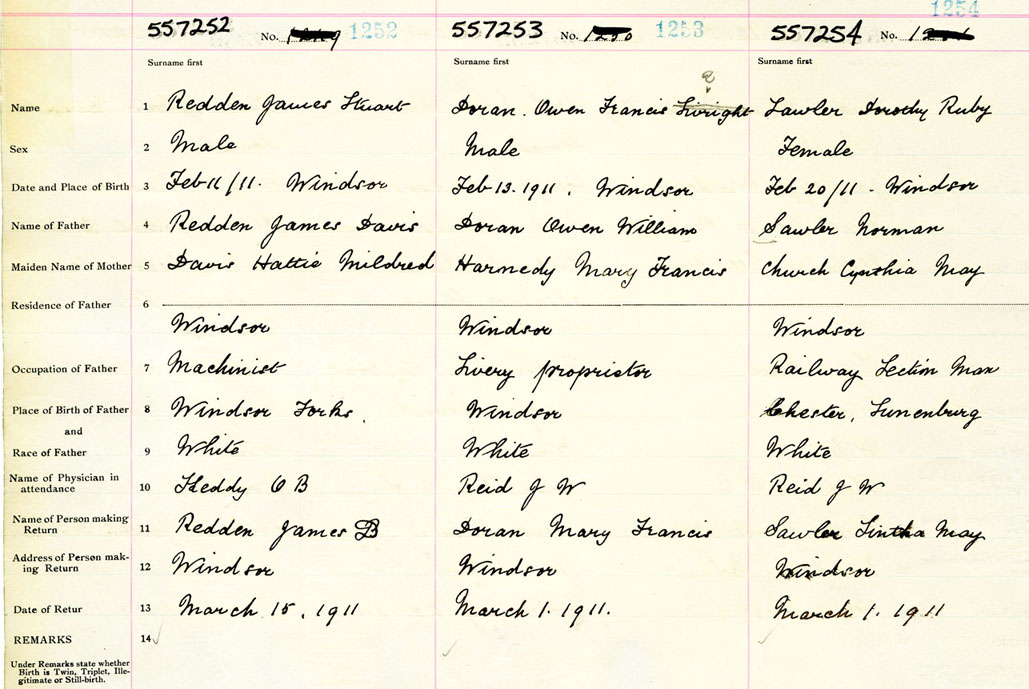 1254
557252 No. 1252 557253 No. 1253 557254 No.
Surname first Surname first Surname first
Name 1 Redden James Stuart Doran. Owen Francis Lawler Dorothy Ruby
Sex 2 Male Male Female
Date and Place of Birth 3 Feb 11/11. Windsor Feb 13. 1911. Windsor Feb 20/11 - Windsor
Name of Father 4 Redden James Davis Doran Owen William Sawler Norman
Maiden Name of Mother 5 Davis Hattie Mildred Harnedy Mary Francis Church Cynthia May
Residence of Father 6
Windsor Windsor Windsor
Occupation of Father 7 Machinist Livery proprietor Railway Section Man
Place of Birth of Father 8 Windsor Forks. Windsor Chester, Lunenburg
and
Race of Father 9 White White White
Name of Physician in
attendance 10 Keddy O B Reid J W Reid J W
Name of Person making
Return 11 Redden James B Doran Mary Francis Sawler May
Address of Person mak-
ing Return 12 Windsor Windsor Windsor
Date of Retur 13 March 15, 1911 March 1. 1911. March 1. 1911
REMARKS 14
Under Remarks state whether
Birth is Twin, Triplet, Ille-
gitimate or Still-birth.